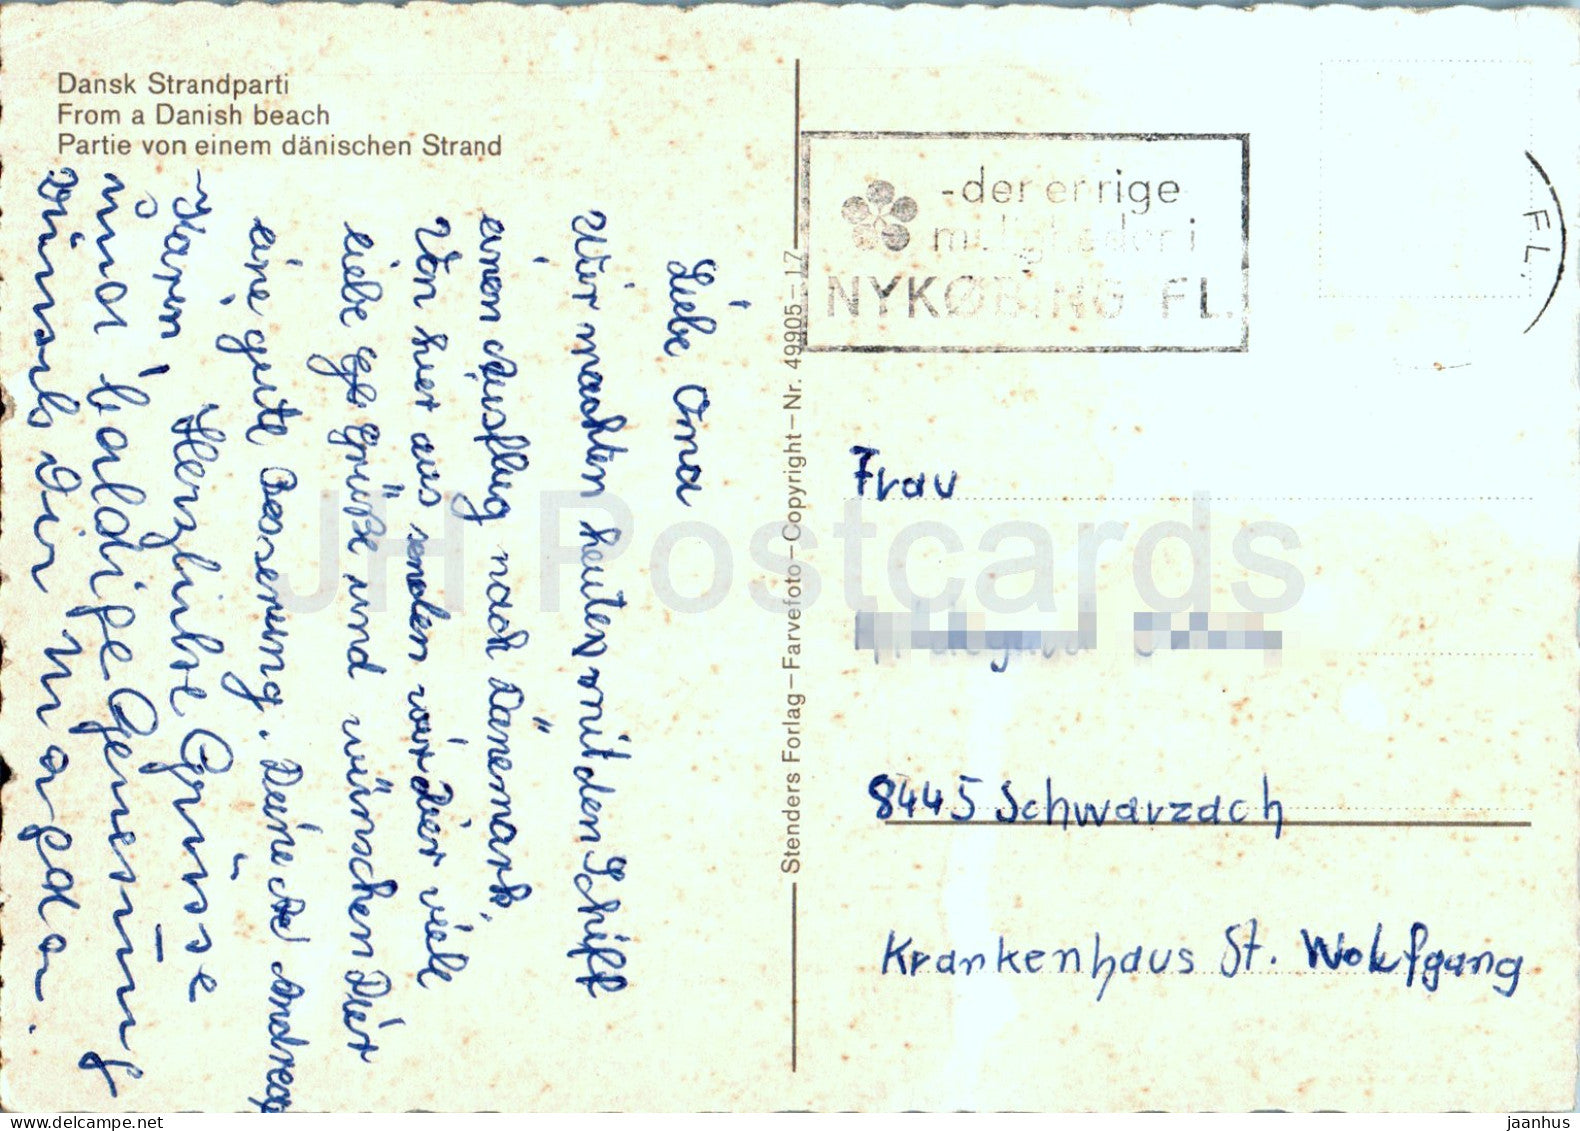 Dansk Strandparti
From a Danish beach
Partie von einem dänischen Strand
Liebe Oma
Wir machten heute mit den Schiff
einen Ausflug nach Dänemark.
Von hier aus senden wir Dier viele
liebe Grüße und wünschen Dier
eine gute Besserung. Deine Andrea
Karen, Herzliche Grüsse
und baldige Genesung
wünsch Dir Magda.
Stenders Forlag – Farvefoto – Copyright – Nr. 49905–17
- der er rige
muligheder i
NYKØBING FL.
FL.
Frau
8445 Schwarzach
Krankenhaus St. Wolfgang
JH Postcards
delcampe.net
jaanhus